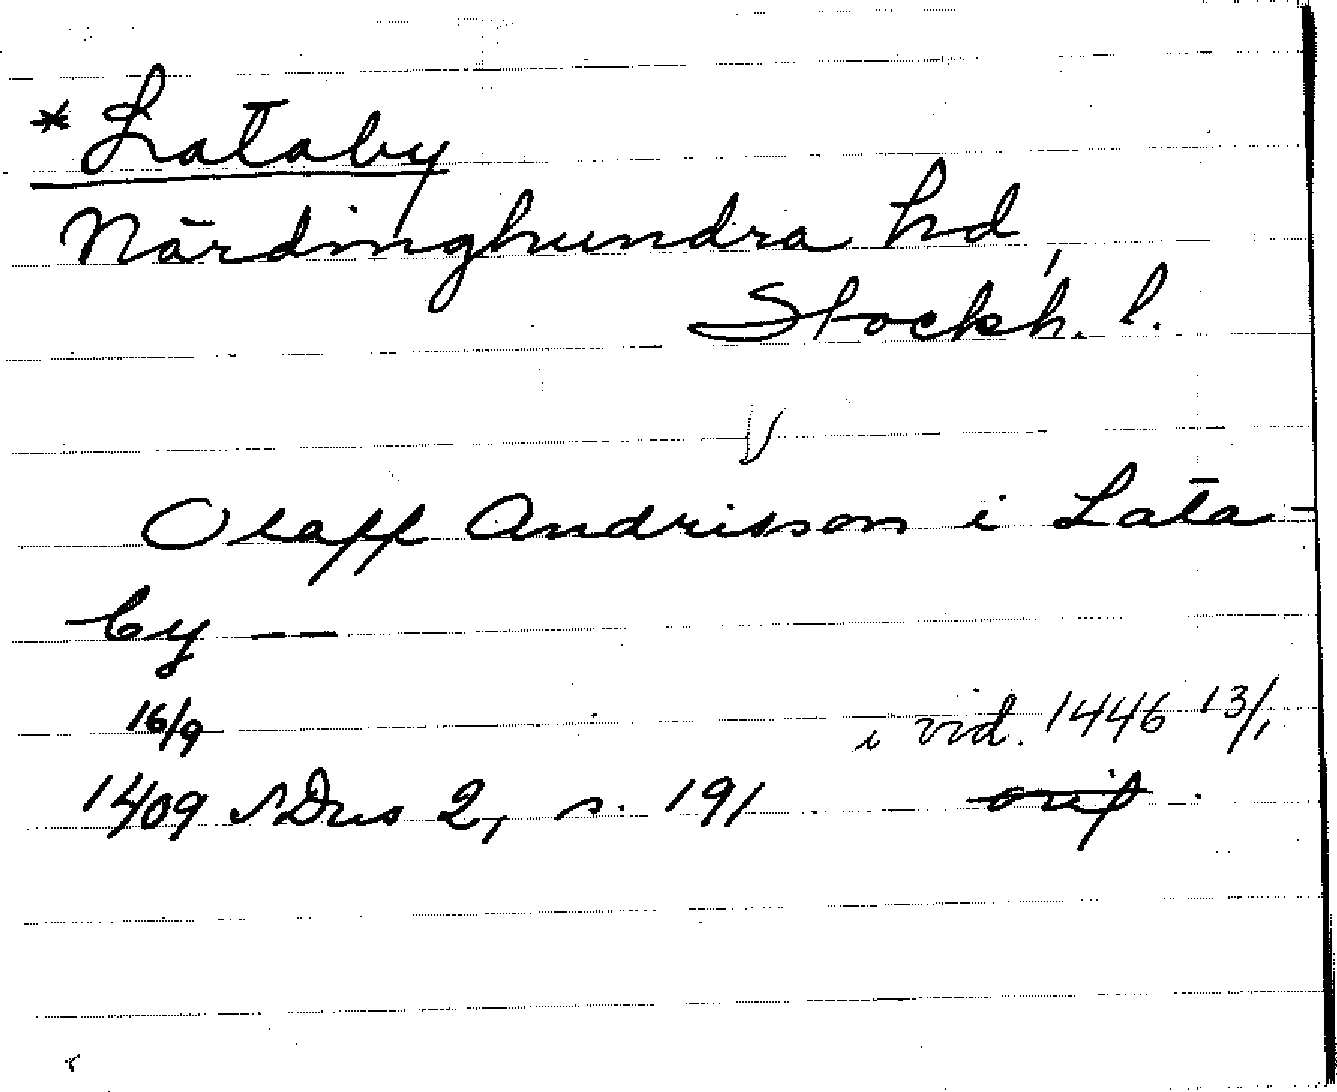 * Lataby
Närdinghundra hd,
Stockh. l.
Olaff Andrisson i Lata-
by —
16/9 i vid. 1446 13/1
1409 SDns 2, s. 191 orig.